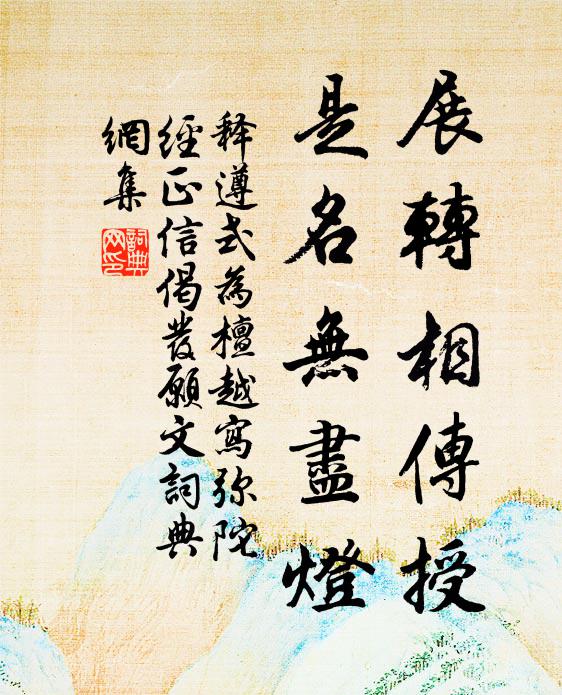 展轉相傳授
是名無盡燈
释遵式為檀越寫弥陀
經正信偈發願文詞典
網集
詞典
网印